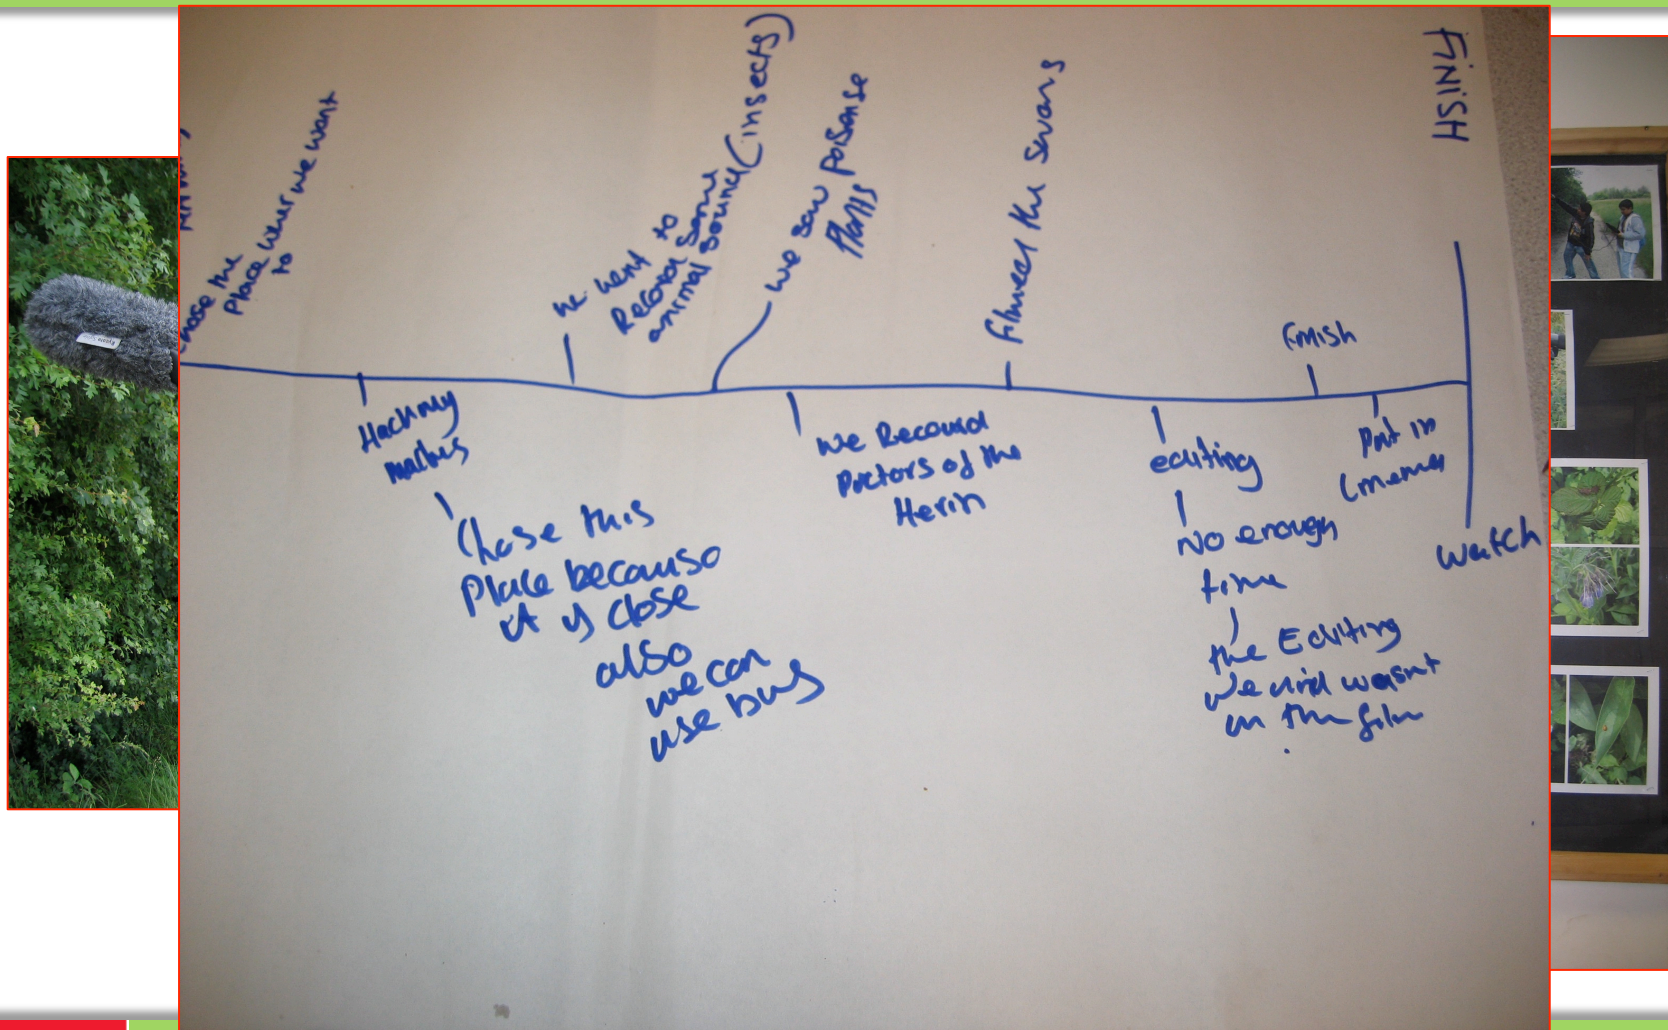 chose the
Place wher we want
to
Hackney
marhis
Chose this
Place becauso
it is close
also
we can
use bus
we went to
Record some
animal sound (insects)
we saw poisonse
Plants
we Recourd
Poctors of the
Herin
filmed the swans
editing
No enough
time
the Editing
we did wasnt
in the film
finish
Put in
Cinema
FiNiSH
watch